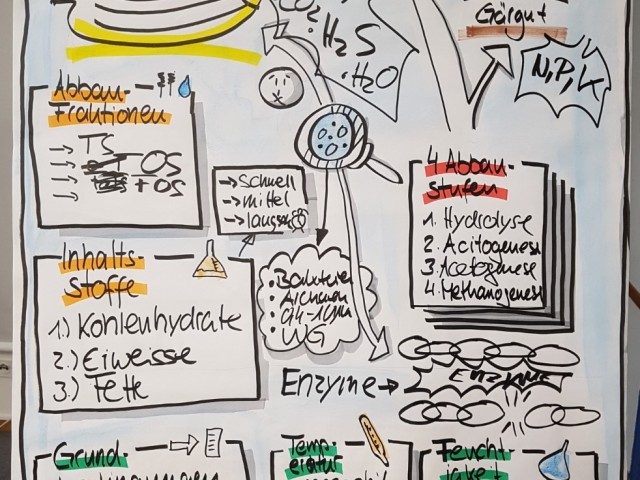 CO₂
· H₂S
· H₂O
Görgut
N,P,K
Abbau-
Fraktionen
→ TS
→ OS
→ FOS
→ schnell
→ mittel
→ langsam
4 Abbau-
stufen
1. Hydrolyse
2. Acitogenese
3. Acetogenese
4. Methanogenese
Inhalts-
Stoffe
1.) Kohlenhydrate
2.) Eiweisse
3.) Fette
· Bakterien
· Archaeen
· WG
Enzyme →
Enzyme
Grund-
Temp-
eratur
Feucht-
igkeit